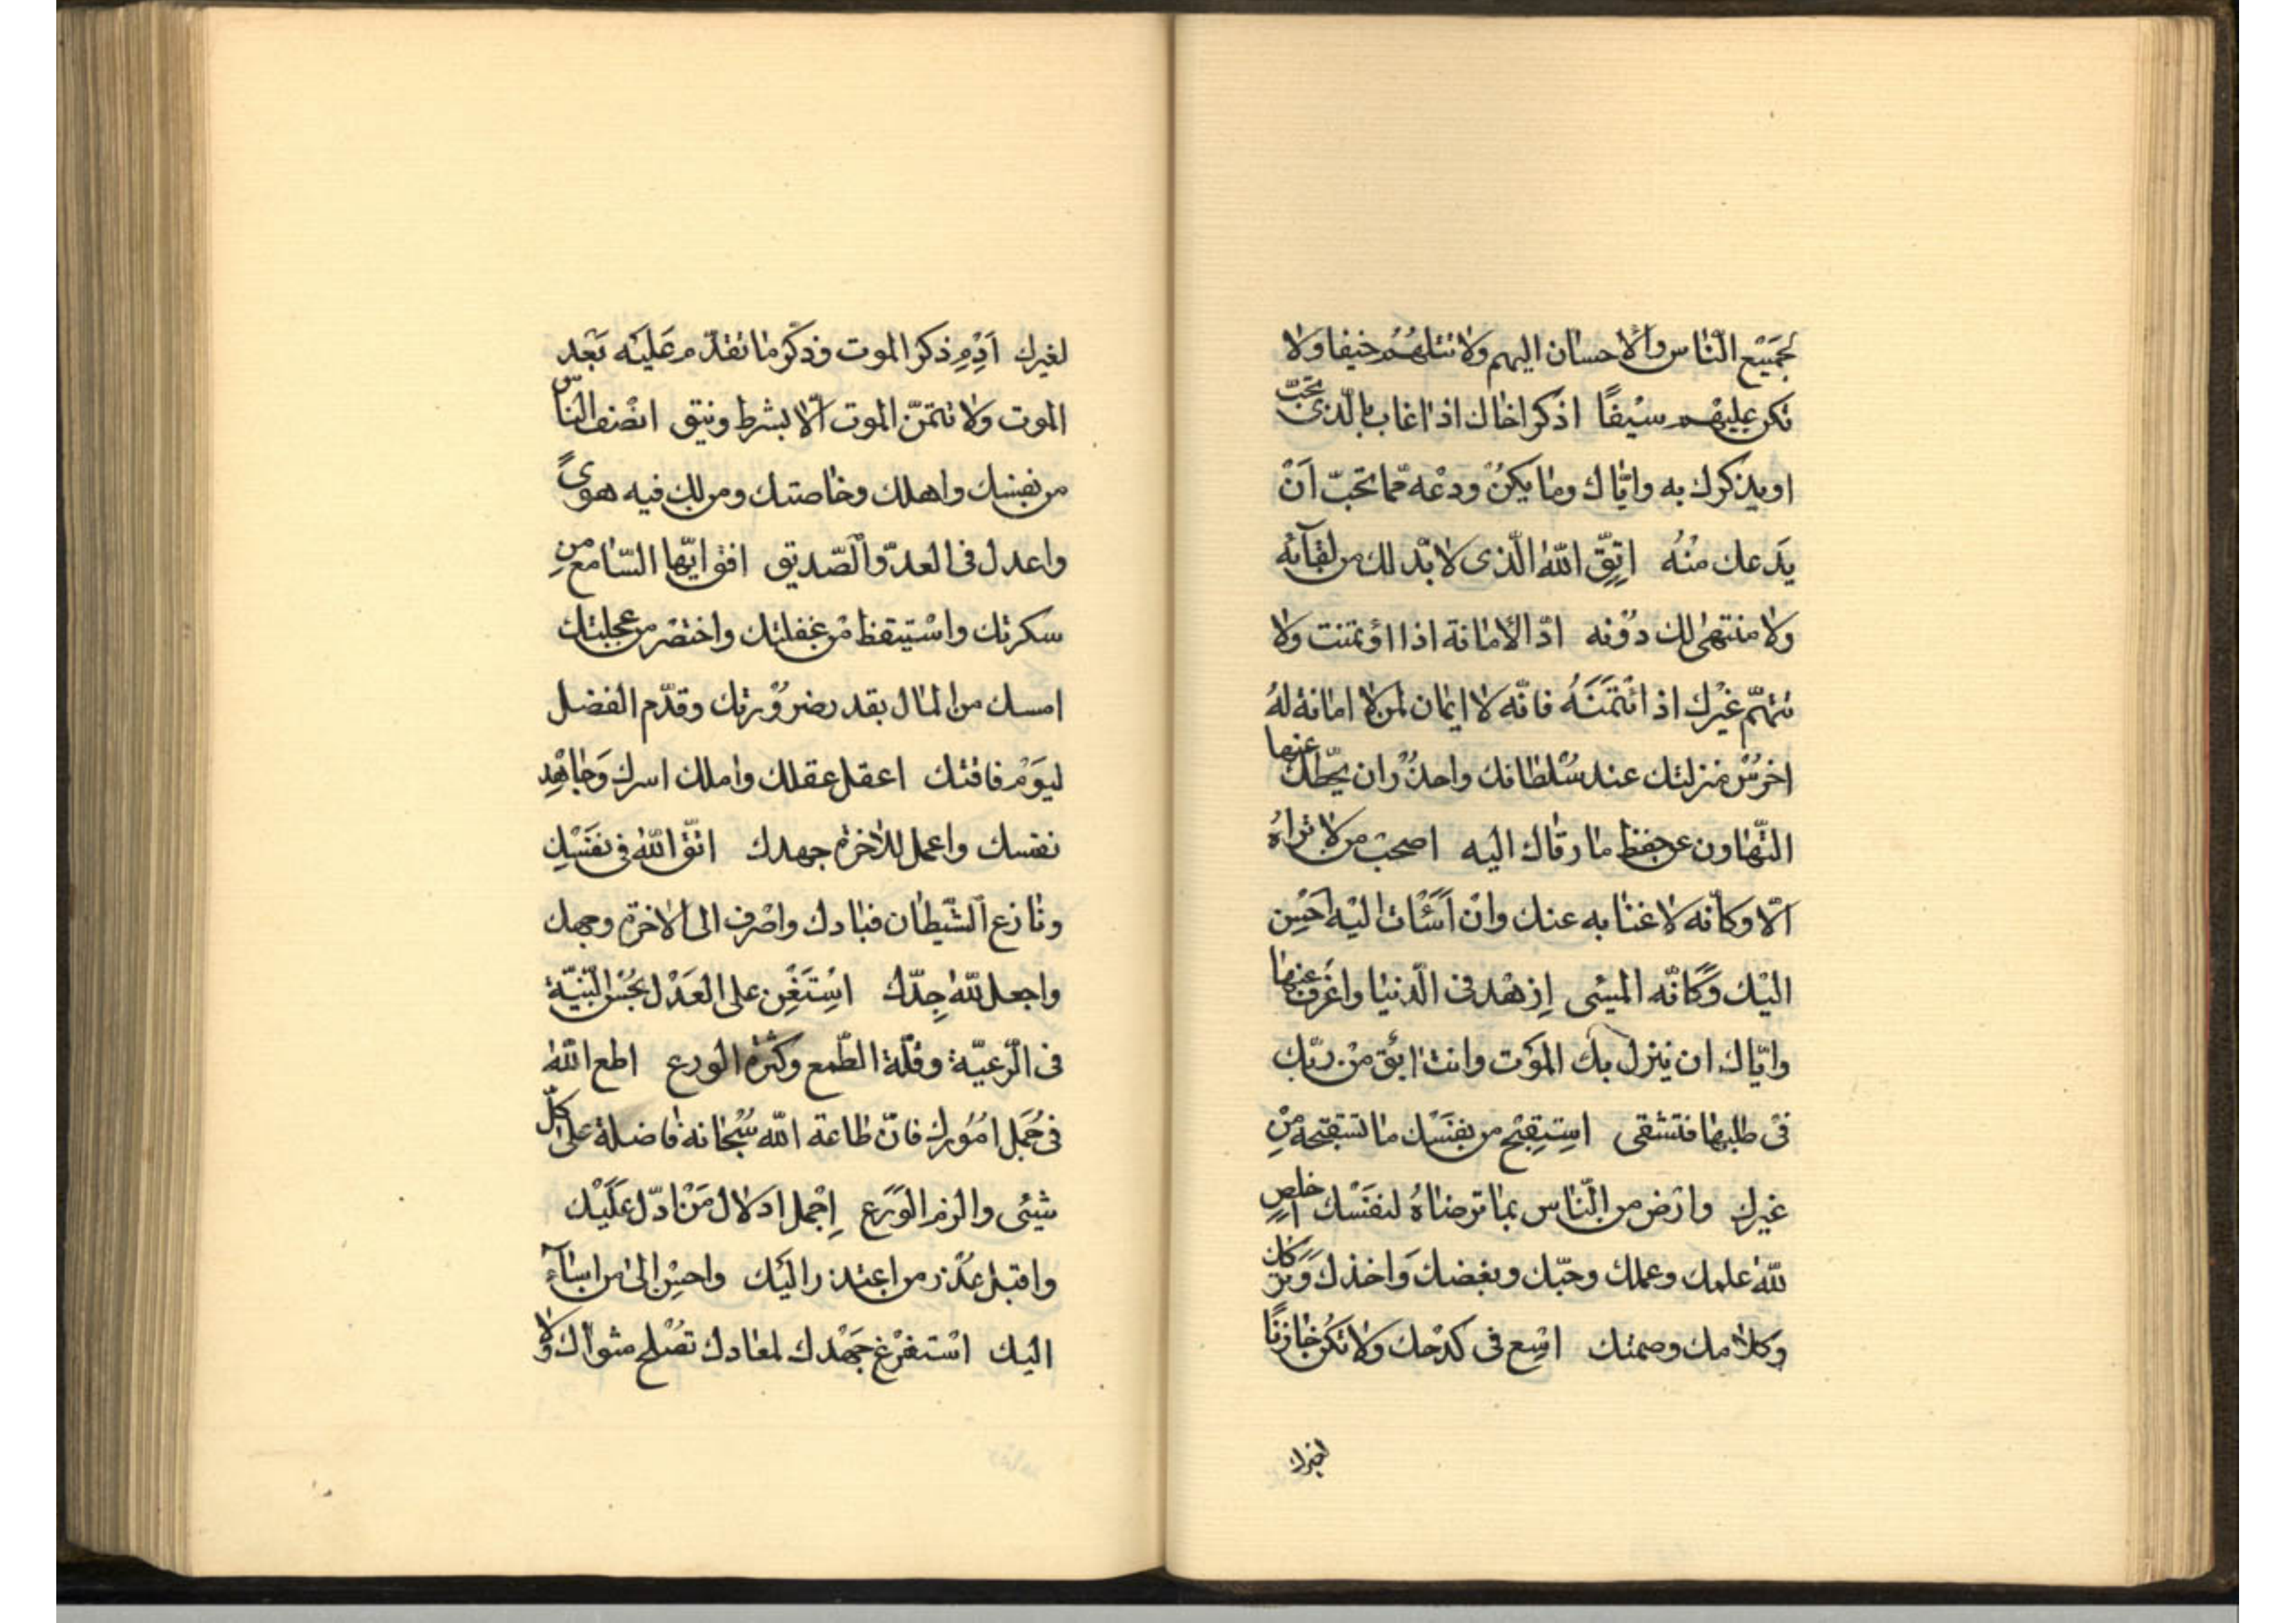 لجَمَيْع النّاس والاحسان اليهم ولا تنلهُمْ حيفا ولا
تكن عليهم سيْفًا اذكر اخاك اذا غاب بالّذى تحبّ
او يذكرك به وايّاك وما يكنُ ودعْه ممّا تحبّ اَنْ
يَدعك منْهُ اِتّقِ اللّه الّذى لا بّد لك من لقآئه
ولا منتهى لك دوُنه ادّ الامانة اذا اؤتمنت ولا
تتّهم غيْرك اذ ائتمَنَتَهُ فانّه لا ايمان لمن لا امانة لهُ
احْرسْ منزلتك عند سُلطانك واحذرْ ان يحطّك عنها
التّهاون عن حفظ ما رقاك اليه اصحب من لا تراهُ
الّا وكانّه لا غنا به عنك وانْ اَسَئْات اليْه احْسِن
اليْك وَكَانّه المسِئى اِزهْد فى الّدنيا واعْزف عنها
وايّاك ان ينزل بك الموَت وانت ابق منْ ربّك
فىْ طلبها فتشقى استِقبْح من نفَسْك ما تستقبحه منْ
غيرك وارْض من الّناس بما ترضاهُ لنفَسْك اخلص
للّه علمك وعملك وحبّك وبغضك وَاخذك وَتركك
وكلامك وصمتك اسْع فى كدْحك ولا تكنْ خازنًا
لغيرك
لغيرك اَدِمْ ذكر الموت وذكر ما تقدّم عَليَه بَعْد
الموت ولا تتمنّ الموت الّا بشرط وثيق انصْف النّاسّ
من نفسك واهلك وخاصتك ومن لك فيه هوىً
واعدل فى العدّو والصّديق افق ايّها السّامع من
سكرتك واسْتيقظ منْ غفلتك واختصْر من عجلتك
امسك من المال بقدر ضروُرتك وقدّم الفضل
ليوَمْ فاقتك اعقل عقلك واملك امرك وَجاهْد
نفسك واعمل للاخرة جهدك اتّق اللّه فى نفَسْك
ونازع الشّيطان قيادك واصْرف الى الاخرة وجهك
واجعل للّه جِدّك اسْتَعِن على العَدْل بحُسْن النّيّة
فى الّرعيّة وقلّة الطّمع وكثرة الورع اطع اللّه
فى جُمَل امُورك فانّ طاعة اللّه سُبْحانه فاضلة على كلّ
شيئى والزم الوَرَع اِجْمل ادلال مَنْ ادّل عَلَيْك
واقبل عذْر من اعتذر اليَك واحسِن الى من اساَء
اليك اسْتفرْغ جَهْدك لمعادك تصْلح مثواك ولا